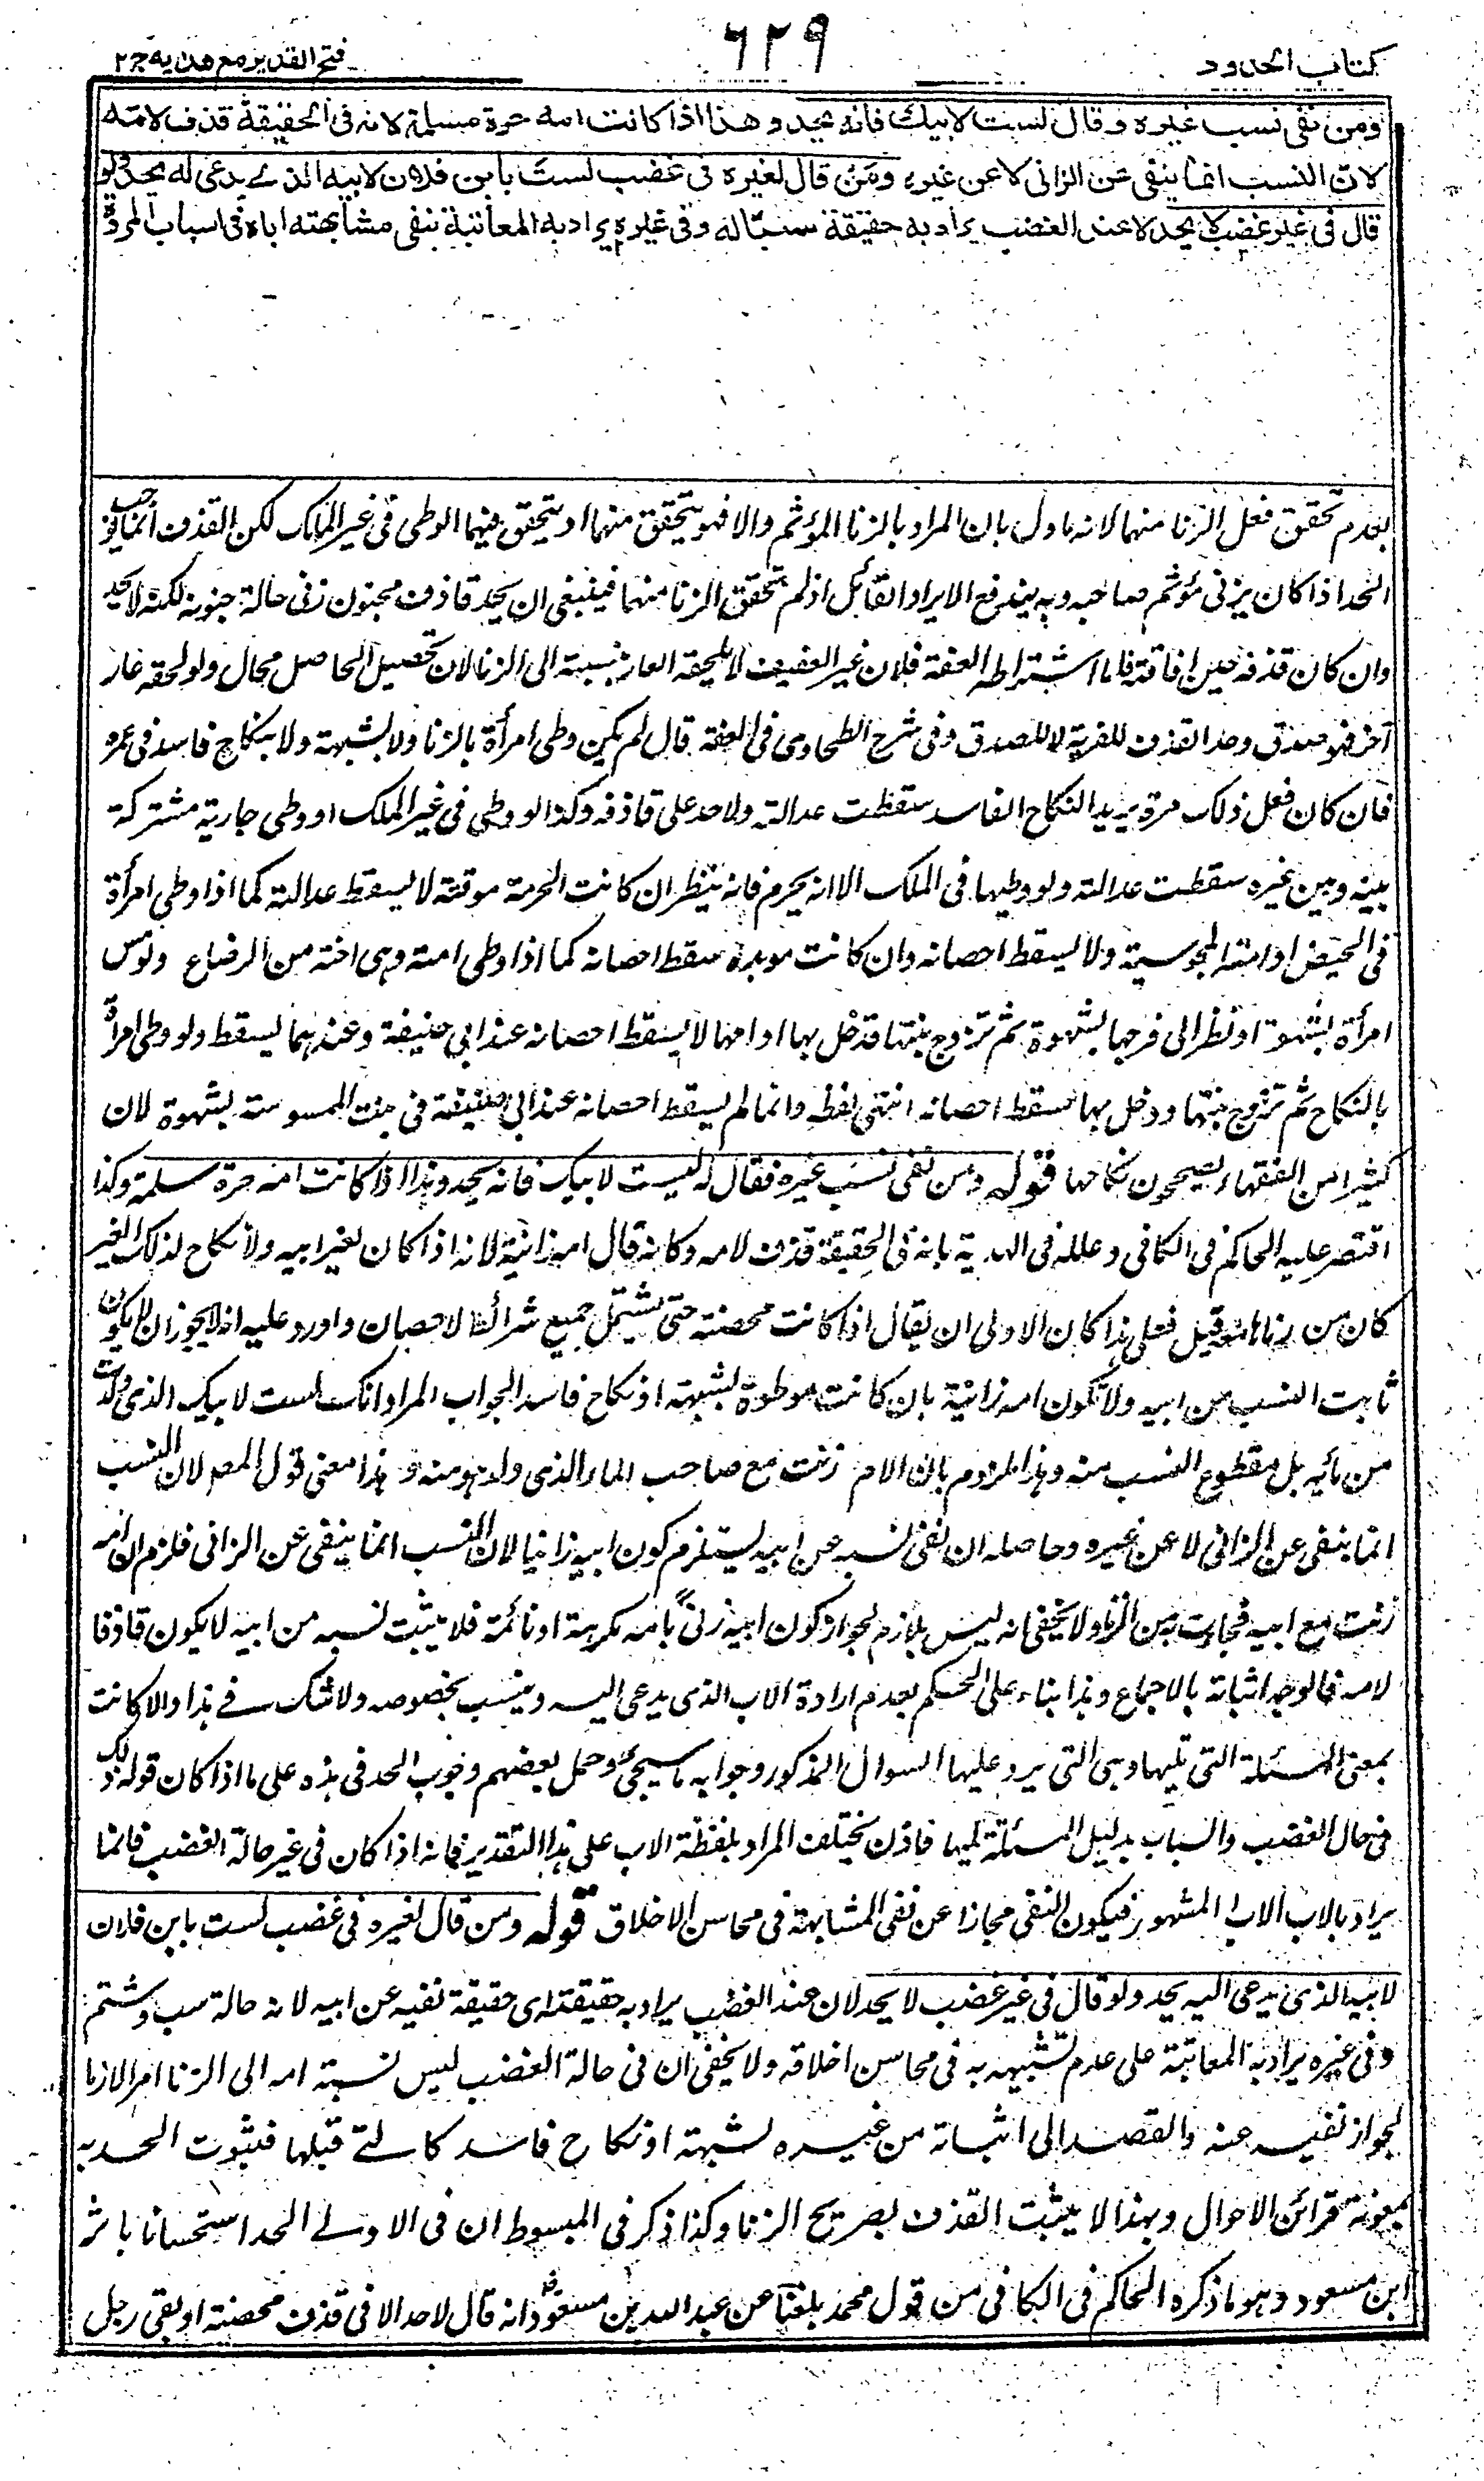 كتاب الحدود
٦٢٩
فتح القدير مع هدايه ج٢
ومن نفى نسب غيره وقال لست لابيك فانه يحد وهذا اذا كانت امه حرة مسلمة لانه فى الحقيقة قذف لامه
لان النسب انما ينفى عن الزانى لا عن غيره ومن قال لغيره فى غضب لست بابن فلان لابيه الذے يدعى له يحد ولو
قال فى غير غضب لا يحد لان عند الغضب يراد به حقيقة سبّا له وفى غيره يراد به المعاتبة بنفى مشابهته اباه فى اسباب المروة
بعدم تحقق فعل الزنا منهما لانه ماول بان المراد بالزنا المؤثم والا فهو يتحقق منهما اذ يتحقق منهما الوطى فى غير الملك لكن القذف انما يوجب
الحد اذا كان بزنى مؤثم صاحبه وبه يندفع الايراد القائل اذ لم يتحقق الزنا منهما فينبغى ان يحد قاذف مجنون زنى حالة جنونه لكنه لا يحد
وان كان قذفه حين افاقته فاما اشتراط العفة فلان غير العفيف لا يلحقه العار بنسبته الى الزنا لان تحصيل الحاصل محال ولو لحقه عار
آخر فهو صدق وحد القذف للفرية لا للصدق وفى شرح الطحاوى فى العفة قال لم يكن وطى امرأة بالزنا ولا بشبهة ولا بنكاح فاسد فى عمره
فان كان فعل ذلك مرة يريد النكاح الفاسد سقطت عدالته ولا حد على قاذفه وكذا لو وطى فى غير الملك او وطى جارية مشتركة
بينه وبين غيره سقطت عدالته ولو وطيها فى الملك الا انه يحرم فانه ينظر ان كانت الحرمة موقتة لا يسقط عدالته كما اذا وطى امرأة
فى الحيض او امته المجوسية ولا يسقط احصانه وان كانت موبدة سقط احصانه كما اذا وطى امته وهى اخته من الرضاع ولو مس
امرأة بشهوة او نظر الى فرجها بشهوة ثم تزوج بنتها فدخل بها او امها لا يسقط احصانه عند ابى حنيفة وعندهما يسقط ولو وطى امرأة
بالنكاح ثم تزوج بنتها ودخل بها يسقط احصانه انتهى لفظه وانما لم يسقط احصانه عند ابى حنيفة فى بنت الممسوسة بشهوة لان
كثيرا من الفقهاء يصححون نكاحها قوله ومن نفى نسب غيره فقال له لست لابيك فانه يحد وهذا اذا كانت امه حرة مسلمة وكذا
اقتصر عليه الحاكم فى الكافى وعلله فى الهداية بانه فى الحقيقة قذف لامه وكانه قال امه زانية لانه اذا كان لغير ابيه ولا نكاح لذلك الغير
كان من زناها معه قيل فعلى هذا كان الاولى ان يقال اذا كانت محصنة حتى يشتمل جميع شرائط الاحصان واورد عليه انه يجوز ان لا يكون
ثابت النسب من ابيه ولا تكون امه زانية بان كانت موطوءة بشبهة او نكاح فاسد الجواب المراد انك لست لابيك الذى ولدت
من مائه بل مقطوع النسب منه وهذا ملزوم بان الام زنت مع صاحب الماء الذى ولد هو منه و هذا معنى قول المصـ لان النسب
انما ينفى عن الزانى لا عن غيره وحاصله ان نفى نسبه عن ابيه يستلزم كون ابيه زانيا لان النسب انما ينفى عن الزانى فلزم ان امه
زنت مع ابيه فجاءت به من الزنا ولا يخفى انه ليس بلازم لجواز كون ابيه زنى بامه مكرهة او نائمة فلا يثبت نسبه من ابيه لا يكون قاذفا
لامه فالوجه اثباته بالاجماع وهذا بناء على الحكم بعدم ارادة الاب الذى يدعى اليه وينسب بخصوصه ولا شك فے هذا والا كانت
بمعنى المسئلة التى تليها وهى التى يرد عليها السوال المذكور وجوابه ما سيجئ وحمل بعضهم وجوب الحد فى هذه على ما اذا كان قوله ذلك
فى حال الغضب والسباب بدليل المسئلة تليها فاذن يختلف المراد بلفظة الاب على هذا التقدير فانه اذا كان فى غير حالة الغضب فانما
يراد بالاب الاب المشهور فيكون النفى مجازا عن نفى المشابهة فى محاسن الاخلاق قوله ومن قال لغيره فى غضب لست بابن فلان
لابيه الذى يدعى اليه يحد ولو قال فى غير غضب لا يحد لان عند الغضب يراد به حقيقته اى حقيقة نفيه عن ابيه لانه حالة سب وشتم
وفى غيره يراد به المعاتبة على عدم تشبيهه به فى محاسن اخلاقه ولا يخفى ان فى حالة الغضب ليس نسبة امه الى الزنا امرا لازما
لجواز نفيه عنه والقصد الى اثباته من غيره بشبهة او نكاح فاسد كالتے قبلها فثبوت الحد به
بمعونة قرائن الاحوال وبهذا لا يثبت القذف بصريح الزنا وكذا ذكر فى المبسوط ان فى الاولے الحد استحسانا باثر
ابن مسعود وهو ما ذكره الحاكم فى الكافى من قول محمد بلغنا عن عبد الله بن مسعود انه قال لا حد الا فى قذف محصنة او نفى رجل